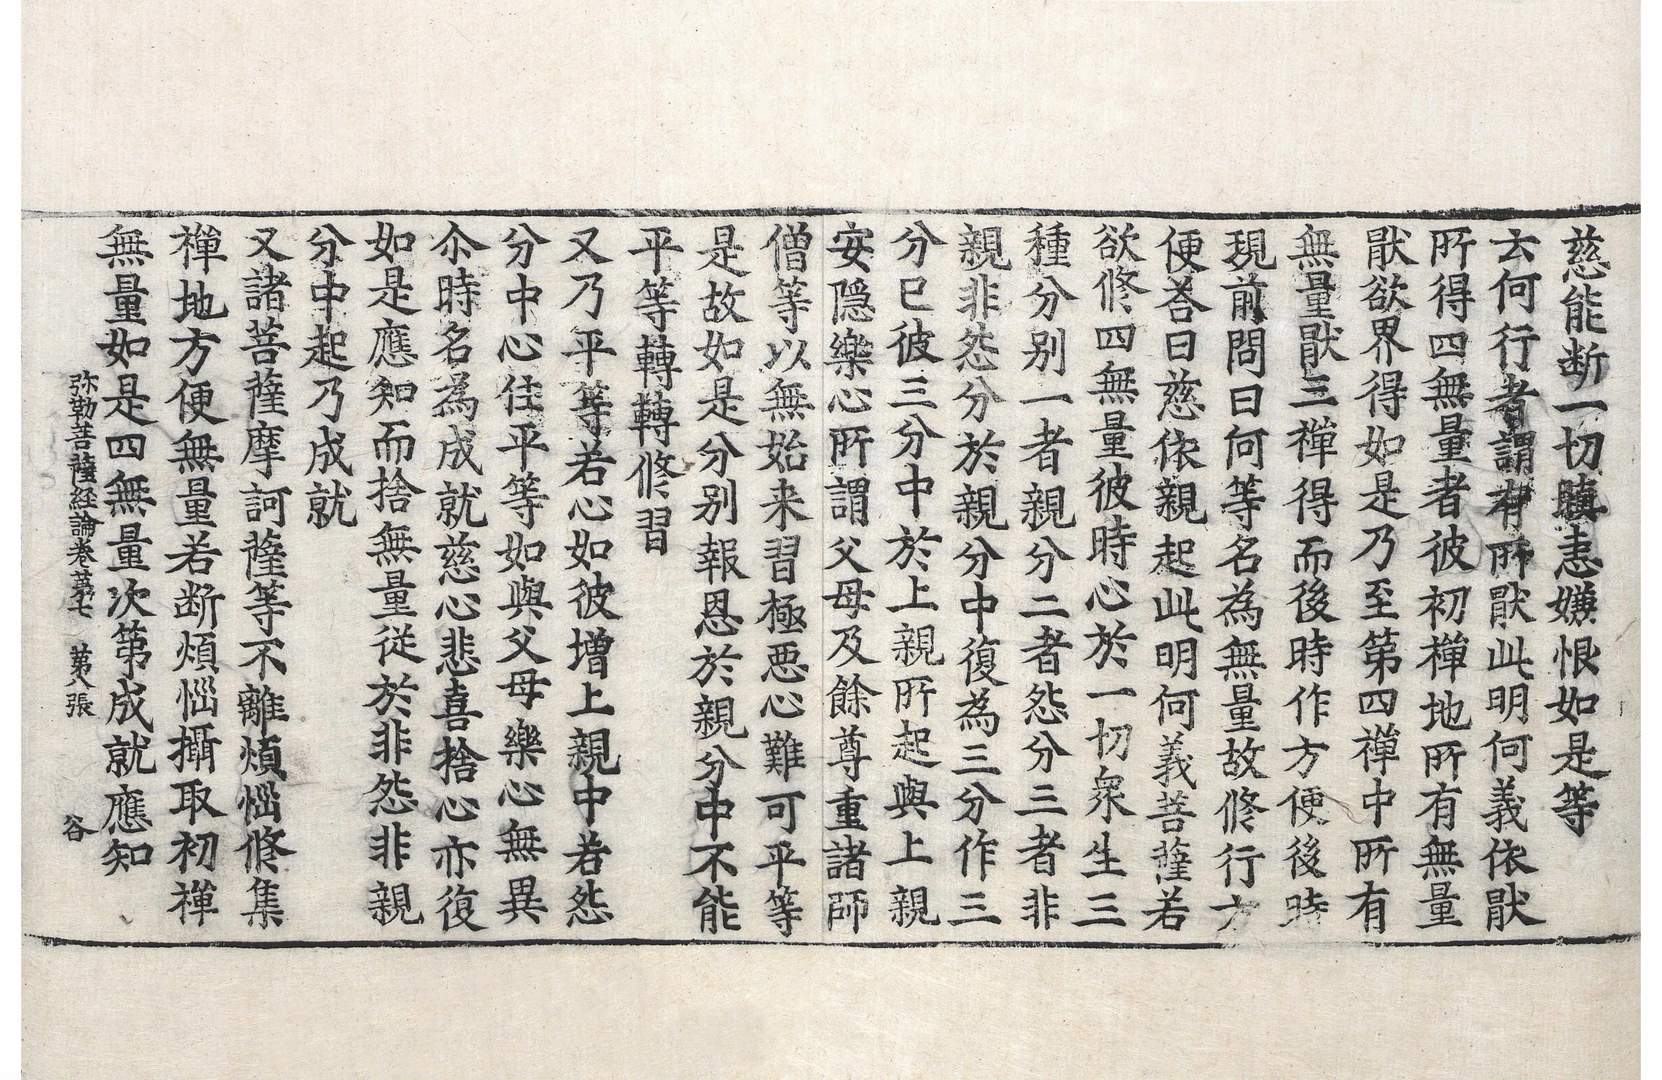 慈能断一切瞋恚嫌恨如是等
去何行者謂有所猒此明何義依猒
所得四無量者彼初禪地所有無量
猒欲界得如是乃至第四禪中所有
無量猒三禪得而後時作方便後時
現前問曰何等名為無量故修行方
便荅曰慈依親起此明何義菩薩若
欲修四無量彼時心於一切衆生三
種分别一者親分二者怨分三者非
親非怨分於親分中復為三分作三
分已彼三分中於上親所起與上親
安隠樂心所謂父母及餘尊重諸師
僧等以無始来習極惡心難可平等
是故如是分别報恩於親分中不能
平等轉轉修習
又乃平等若心如彼增上親中若怨
分中心住平等如與父母樂心無異
尒時名為成就慈心悲喜捨心亦復
如是應知而捨無量従於非怨非親
分中起乃成就
又諸菩薩摩訶薩等不離煩惱修集
禪地方便無量若断煩惱攝取初禪
無量如是四無量次第成就應知
弥勒菩薩経論卷第七　第八張　谷